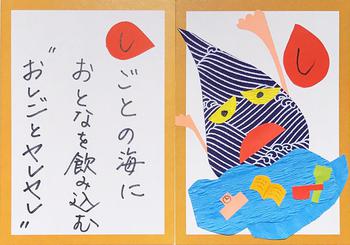 し
ごとの海に
おとなを飲み込む
“おしごとヤレヤレ”
し